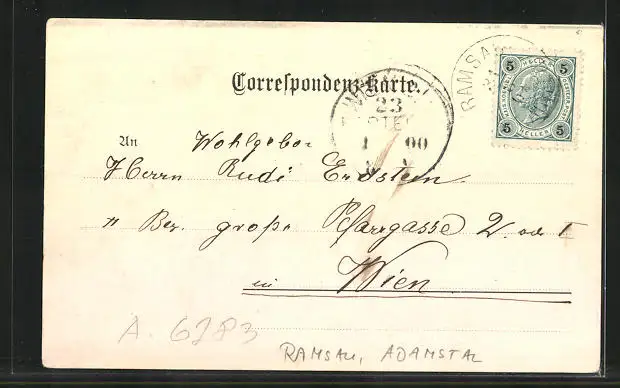 Correspondenz-Karte.
RAMSAU
5 5
HELLER HELLER
5 5
WIEN
23
1 00
An Wohlgebor
Herrn Rudi Erdstein
II Bez. große Pfarrgasse 2. od I
in Wien
A. 6783
RAMSAU, ADAMSTAL